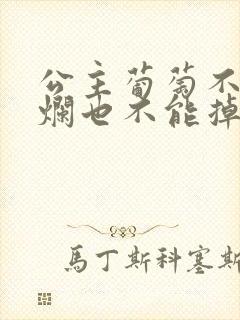 公主葡萄不
爛也不能掉
馬丁斯科塞斯